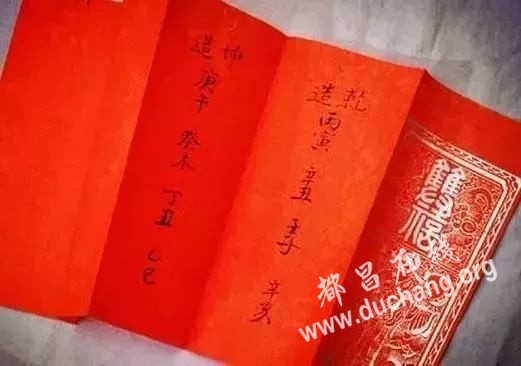 乾造 丙寅 辛丑 壬子 辛亥
坤造 庚午 癸未 丁丑 乙巳
都昌在线
www.duchang.org